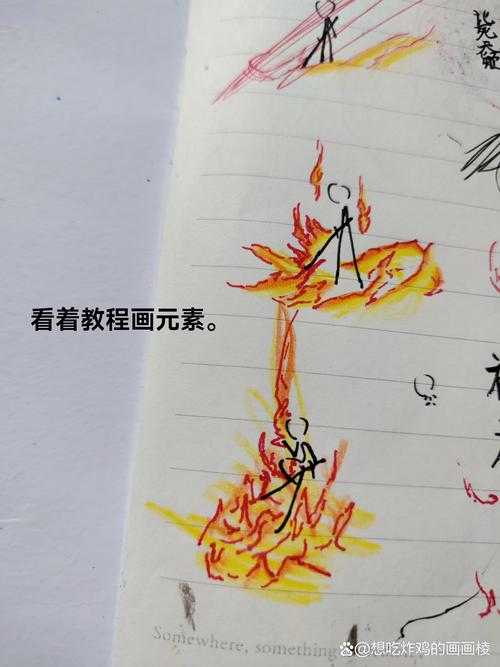 看着教程画元素。
Somewhere, something
想吃炸鸡的画画棱